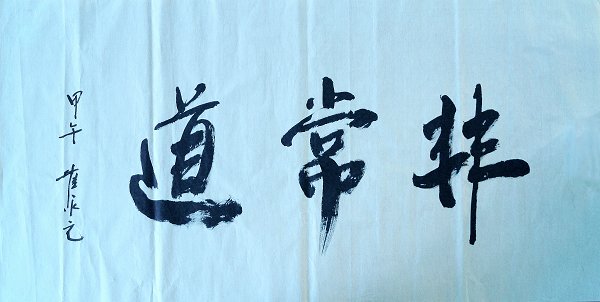 非常道
甲午 崔永元